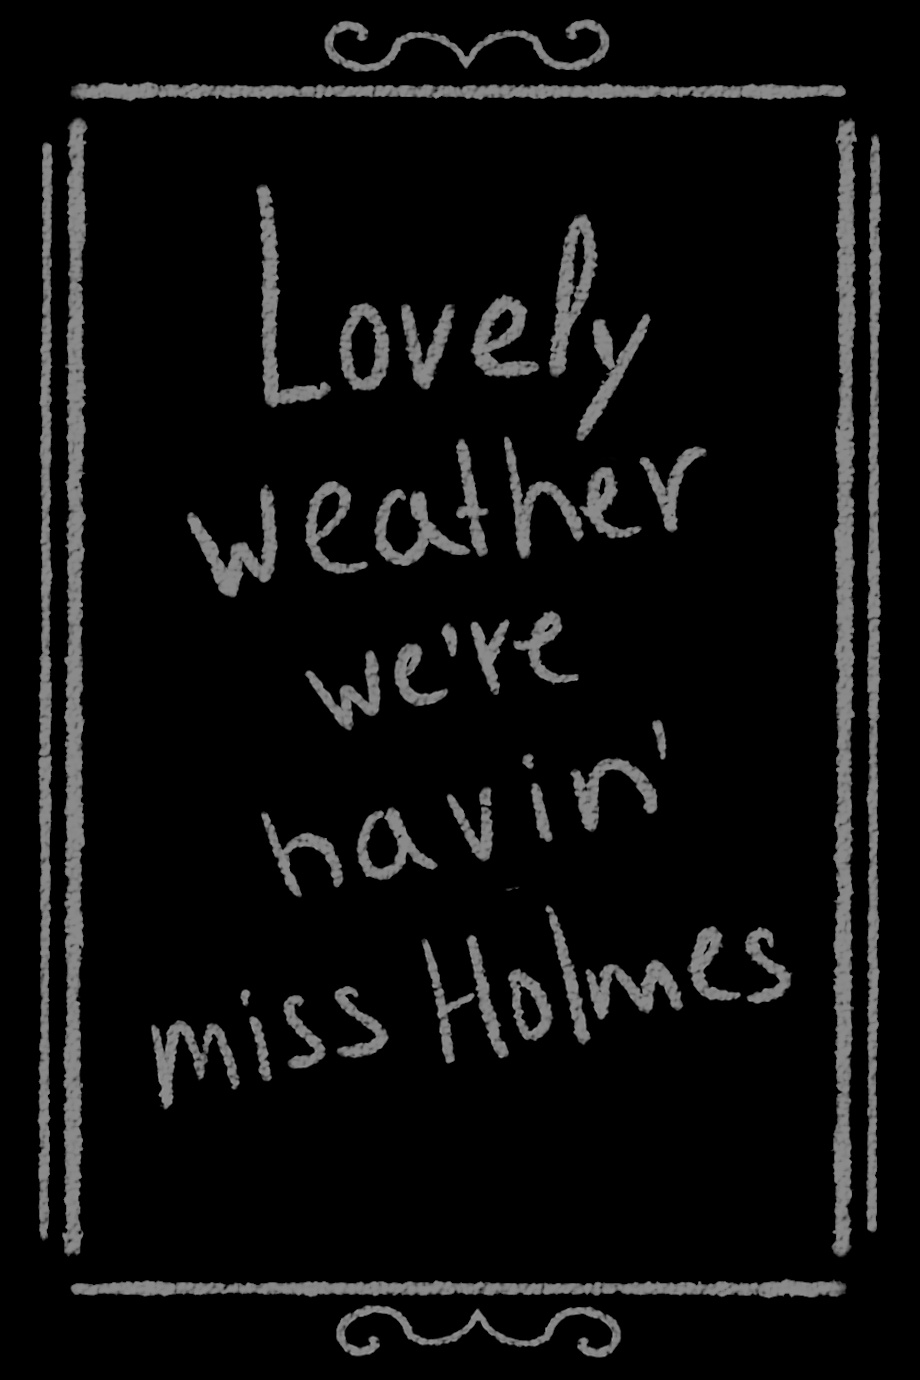 Lovely
weather
we're
havin'
miss Holmes